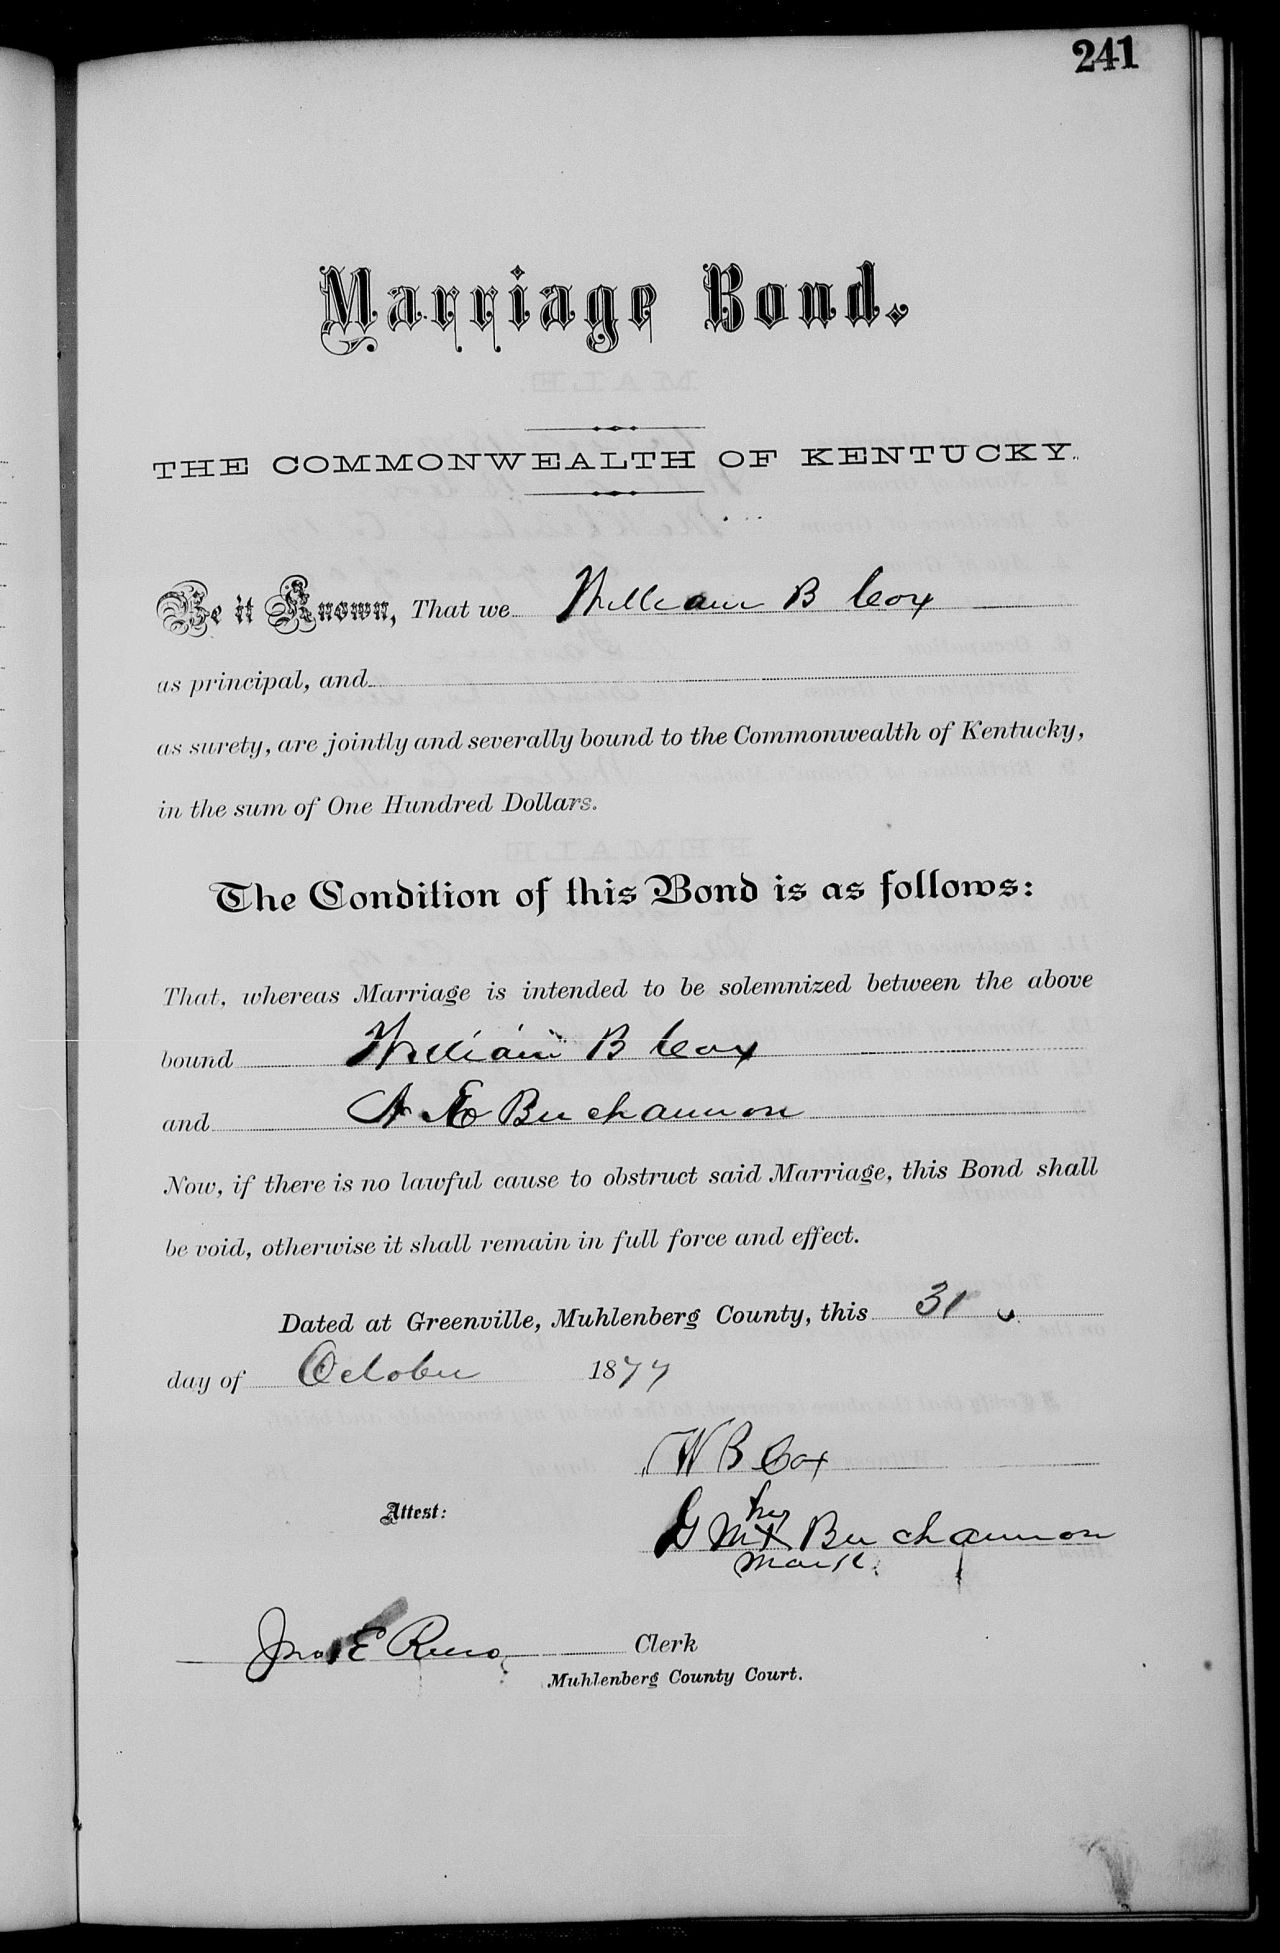 241
Marriage Bond.
THE COMMONWEALTH OF KENTUCKY.
Be it Known, That we William B Cox
as principal, and
as surety, are jointly and severally bound to the Commonwealth of Kentucky,
in the sum of One Hundred Dollars.
The Condition of this Bond is as follows:
That, whereas Marriage is intended to be solemnized between the above
bound William B Cox
and A E Buchannon
Now, if there is no lawful cause to obstruct said Marriage, this Bond shall
be void, otherwise it shall remain in full force and effect.
Dated at Greenville, Muhlenberg County, this 31
day of October 1877
W B Cox
Attest:
his
G M X Buchannon
mark.
Jno E Reno Clerk
Muhlenberg County Court.